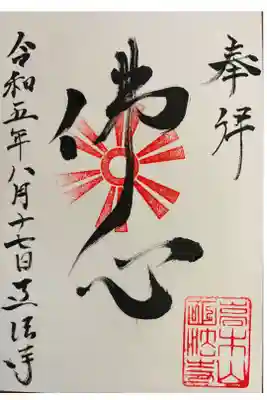 奉拝
佛心
令和五年八月十七日
高木山